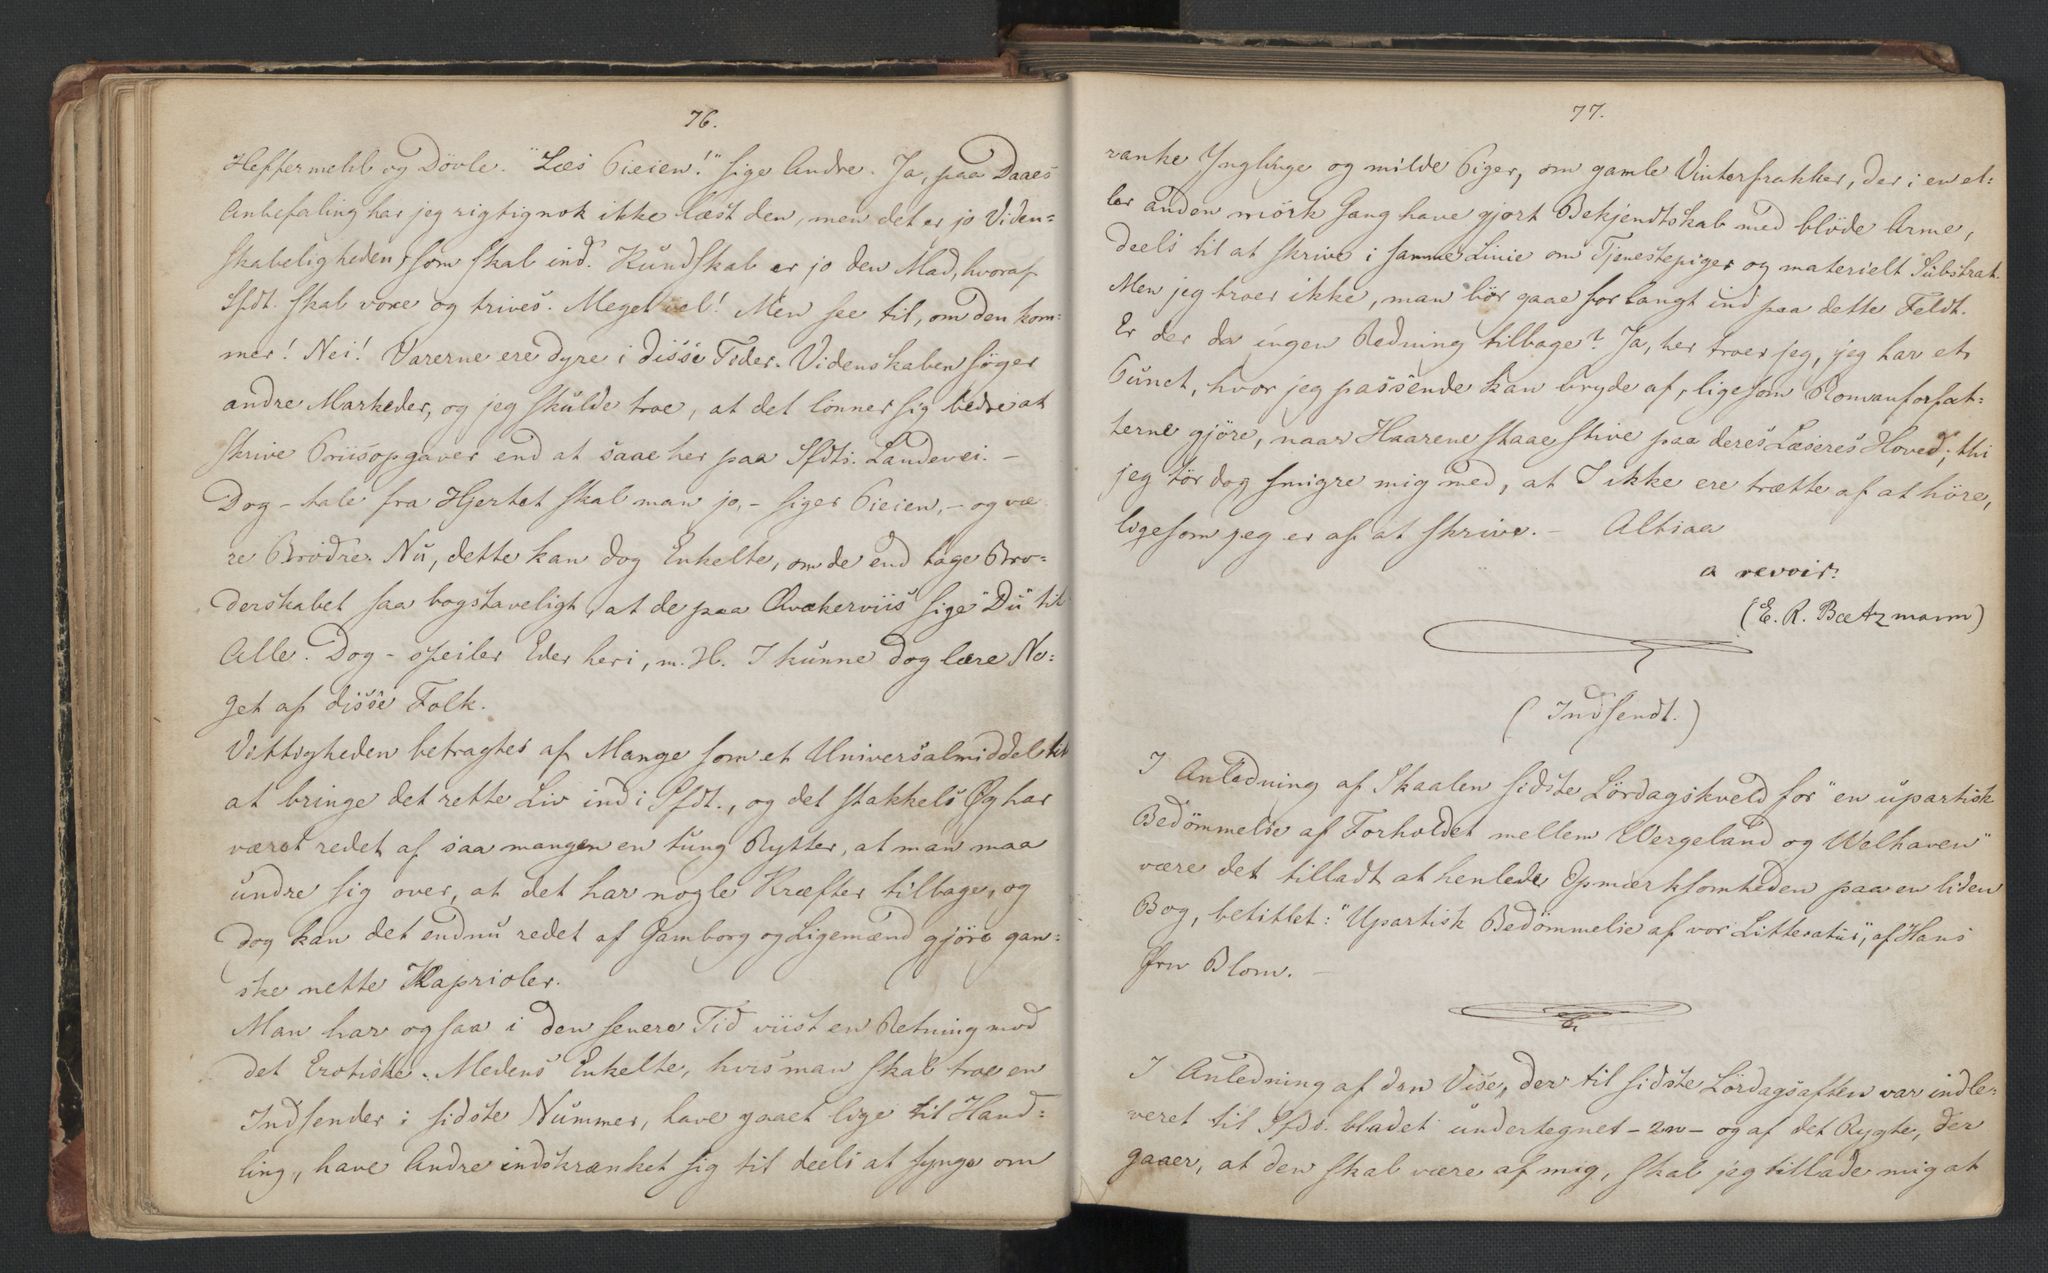 76.
Heffermehl og Dövle. "Læs Cicien!" sige Andre. Ja, paa Daaes
Anbefaling har jeg rigtignok ikke læst den, men det er jo Viden-
skabeligheden, som skal ind. Kundskab er jo den Mad, hvoraf
Sfdt. skal voxe og trives. Meget vel! Men see til, om den kom-
mer! Nei! Varerne ere dyre i disse Tider. Videnskaben söger
andre Markeder, og jeg skulde troe, at det lönner sig bedre at
skrive Priisopgaver end at saae her paa Sfdts. Landevei. -
Dog - tale fra Hjertet skal man jo, - siger Cicien, - og væ
re Brödre. Nu, dette kan dog Enkelte, om de end tage Bro-
derskabet saa bogstaveligt, at de paa Qvækerviis sige "Du" til
Alle. Dog - speiler Eder heri, m. H. I kunne dog lære No-
get af disse Folk.
Vittigheden betragtes af Mange som et Universalmiddel til
at bringe det rette Liv ind i Sfdt., og det stakkels Øg har
været redet af saa mangen en tung Rytter, at man maa
undre sig over, at det har nogle Kræfter tilbage, og
dog kan det endnu redet af Gamborg og Ligemænd gjöre gan-
ske nette Kaprioler.
Man har ogsaa i den senere Tid viist en Retning mod
det Erotiske. Medens Enkelte, hvis man skal troe en
Indsender i sidste Nummer, have gaaet lige til Hand-
ling, have Andre indskrænket sig til deels at synge om
77.
ranke Ynglinge og milde Piger, om gamle Vinterfrakker, der i en el-
ler anden mörk Gang have gjort Bekjendtskab med blöde Arme,
deels til at skrive i samme Linie om Tjenestepiger og materielt Substrat.
Men jeg troer ikke, man bör gaae for langt ind paa dette Feldt.
Er der da ingen Redning tilbage? Ja, her troer jeg, jeg har et
Punct, hvor jeg passende kan bryde af, ligesom Romanforfat-
terne gjöre, naar Haarene staae stive paa deres Læseres Hoved; thi
jeg tör dog smigre mig med, at I ikke ere trætte af at höre,
ligesom jeg er af at skrive. - Altsaa
a revoir!
(E. R. Bætzmann)
(Indsendt.)
I Anledning af Skaalen sidste Lördagskveld for "en upartisk
Bedömmelse af Forholdet mellem Wergeland og Welhaven"
være det tilladt at henlede Opmærksomheden paa en liden
Bog, betitlet: "Upartisk Bedömmelse af vor Litteratur", af Hans
Ørn Blom. -
I Anledning af den Vise, der til sidste Lördagsaften var indle-
veret til Sfds. bladet undertegnet - 2n - og af det Rygte, der
gaaer, at den skal være af mig, skal jeg tillade mig at